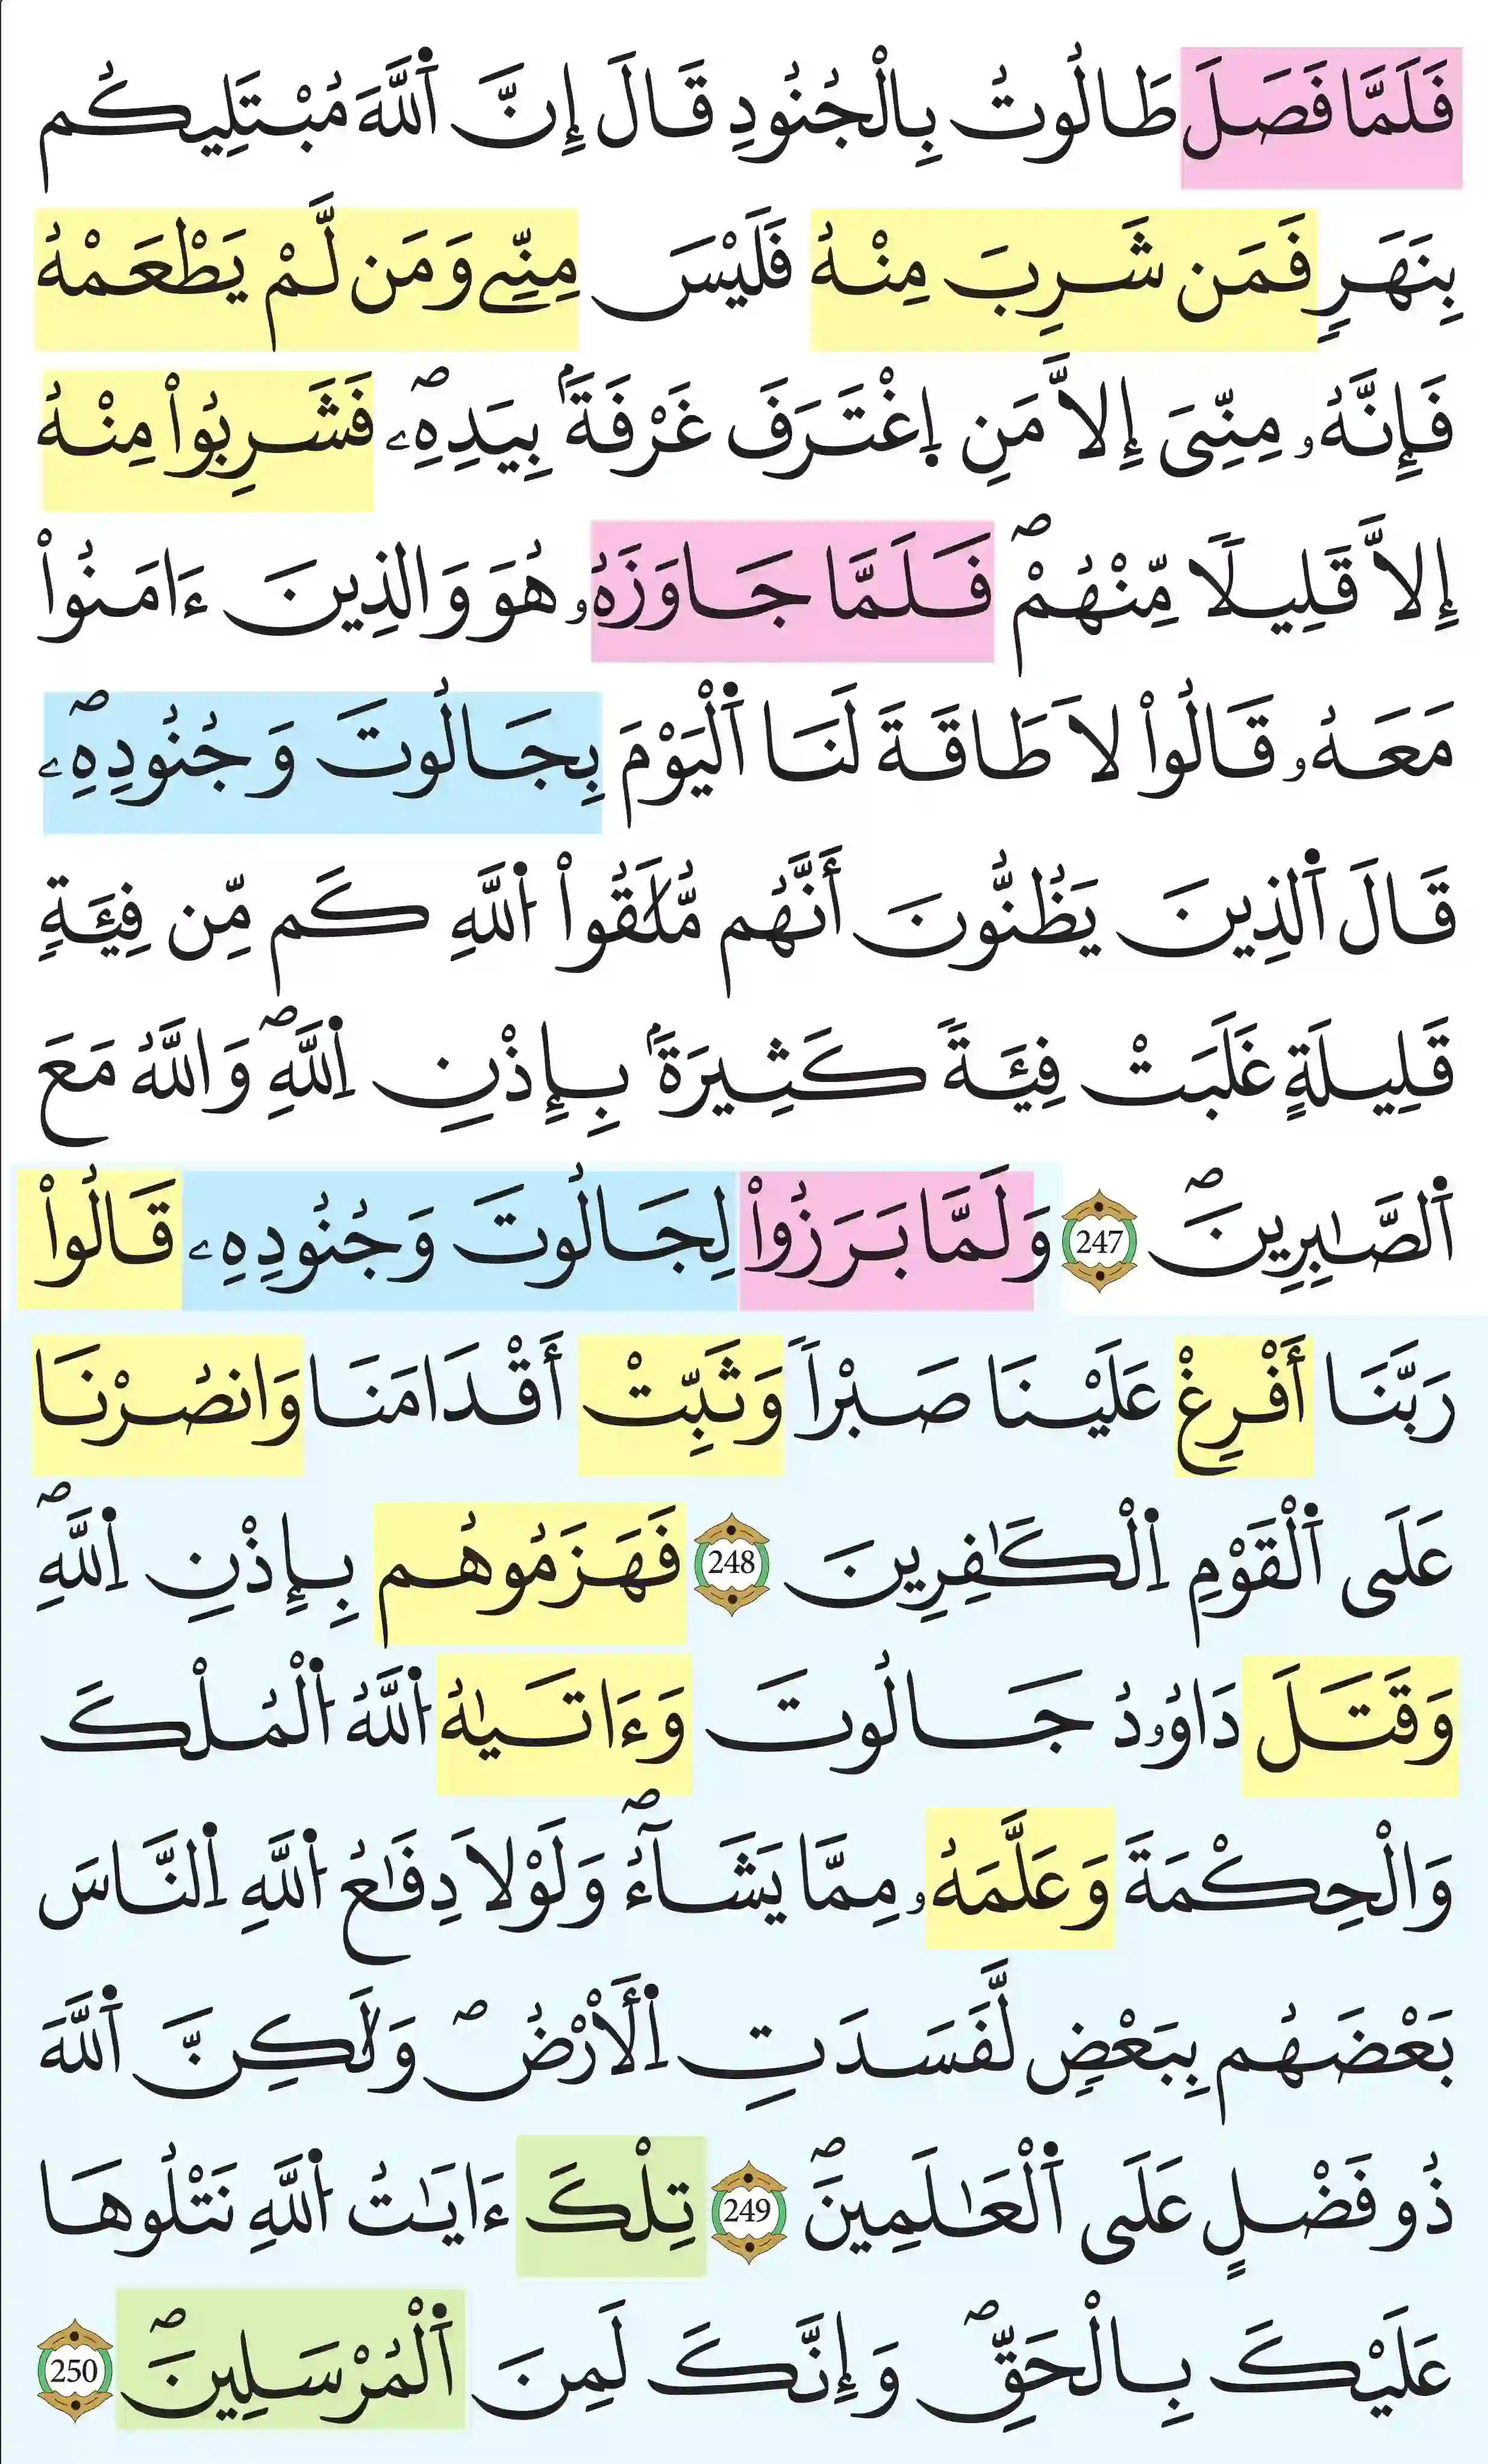 فَلَمَّا فَصَلَ طَالُوتُ بِالْجُنُودِ قَالَ إِنَّ اَ۬للَّهَ مُبْتَلِيكُم
بِنَهَرٍ فَمَن شَرِبَ مِنْهُ فَلَيْسَ مِنِّے وَمَن لَّمْ يَطْعَمْهُ
فَإِنَّهُۥ مِنِّىَ إِلاَّ مَنِ اِغْتَرَفَ غَرْفَةَۢ بِيَدِهِۦۖ فَشَرِبُواْ مِنْهُ
إِلاَّ قَلِيلًا مِّنْهُمْۖ فَلَمَّا جَاوَزَهُۥ هُوَ وَالذِينَ ءَامَنُواْ
مَعَهُۥ قَالُواْ لاَ طَاقَةَ لَنَا اَ۬لْيَوْمَ بِجَالُوتَ وَجُنُودِهِۦۖ
قَالَ اَ۬لذِينَ يَظُنُّونَ أَنَّهُم مُّلَٰقُواْ اُ۬للَّهِ كَم مِّن فِئَةٍ
قَلِيلَةٍ غَلَبَتْ فِئَةً كَثِيرَةَۢ بِإِذْنِ اِ۬للَّهِۖ وَاللَّهُ مَعَ
اَ۬لصَّٰبِرِينَۖ 247 وَلَمَّا بَرَزُواْ لِجَالُوتَ وَجُنُودِهِۦ قَالُواْ
رَبَّنَا أَفْرِغْ عَلَيْنَا صَبْراً وَثَبِّتْ أَقْدَامَنَا وَانصُرْنَا
عَلَى اَ۬لْقَوْمِ اِ۬لْكَٰفِرِينَ 248 فَهَزَمُوهُم بِإِذْنِ اِ۬للَّهِۖ
وَقَتَلَ دَاوُۥدُ جَالُوتَ وَءَاتَيٰهُ اُ۬للَّهُ اُ۬لْمُلْكَ
وَالْحِكْمَةَ وَعَلَّمَهُۥ مِمَّا يَشَآءُۖ وَلَوْلاَ دِفَٰعُ اُ۬للَّهِ اِ۬لنَّاسَ
بَعْضَهُم بِبَعْضٍ لَّفَسَدَتِ اِ۬لْأَرْضُۖ وَلَٰكِنَّ اَ۬للَّهَ
ذُو فَضْلٍ عَلَى اَ۬لْعَٰلَمِينَۖ 249 تِلْكَ ءَايَٰتُ اُ۬للَّهِ نَتْلُوهَا
عَلَيْكَ بِالْحَقِّۖ وَإِنَّكَ لَمِنَ اَ۬لْمُرْسَلِينَۖ 250